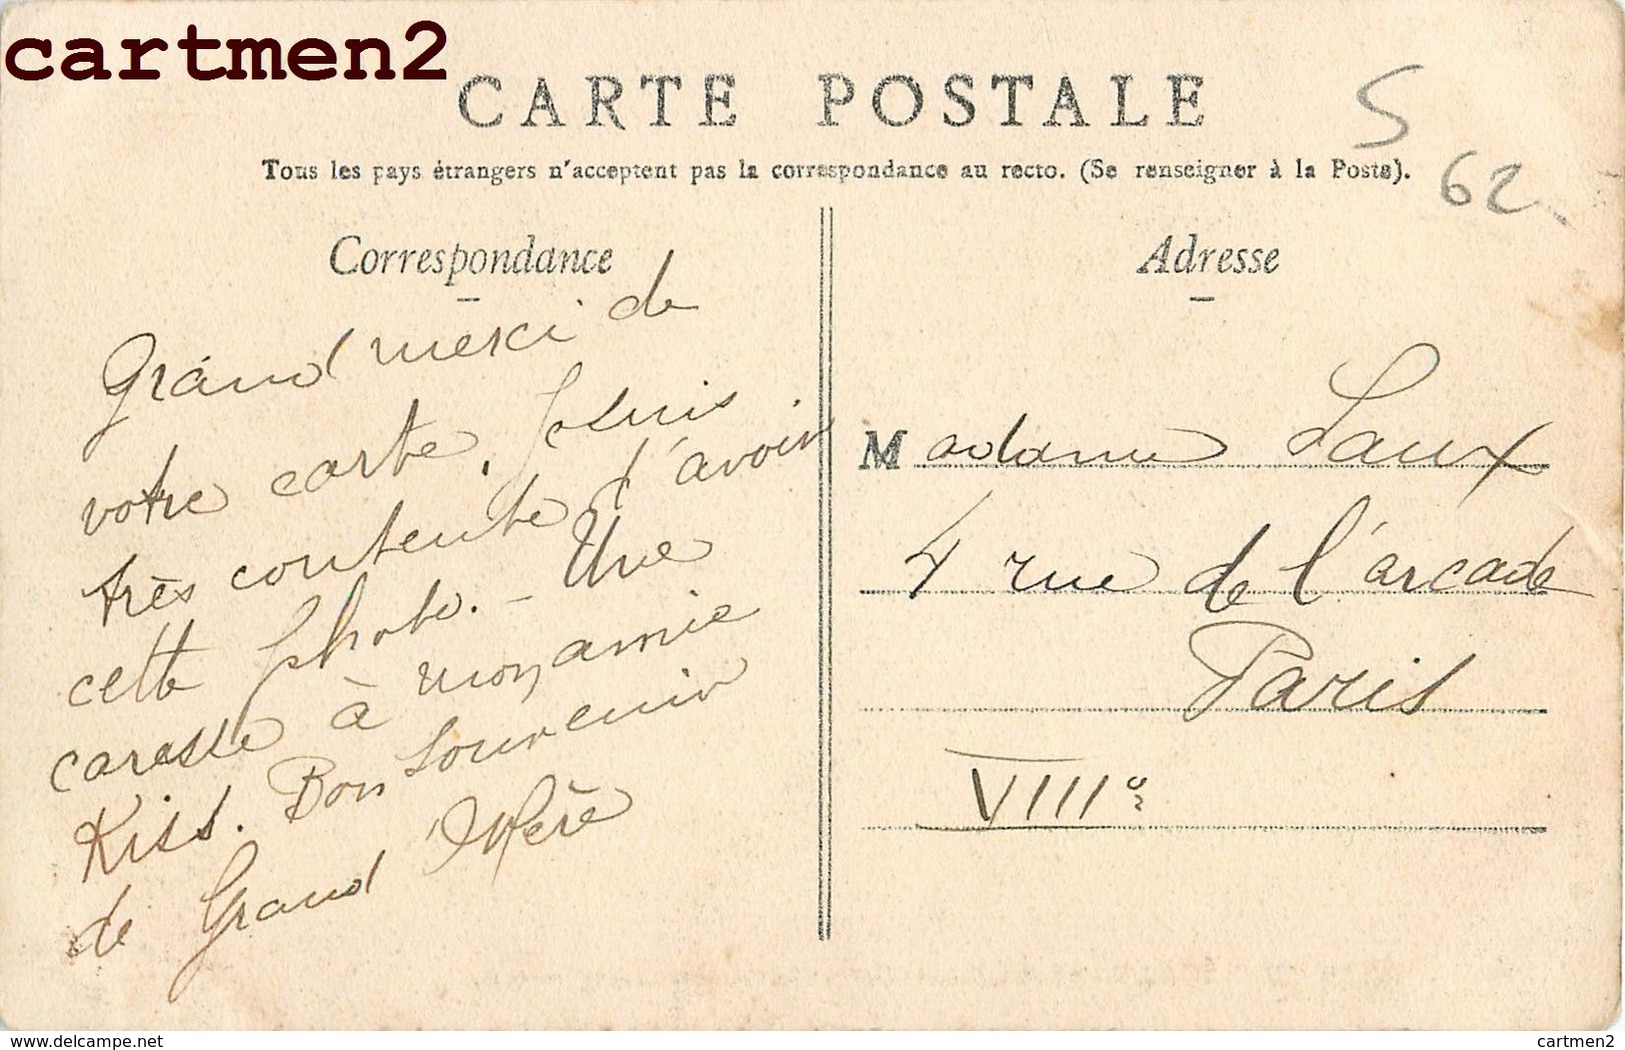 cartmen2
CARTE POSTALE
Tous les pays étrangers n'acceptent pas la correspondance au recto. (Se renseigner à la Poste).
5
62
Correspondance
Grand merci de
votre carte. Je suis
très contente d'avoir
cette photo. - Une
caresse à mon amie
Kiss. Bon souvenir
de Grand Mère
Adresse
Madame Laux
4 rue de l'arcade
Paris
VIIIe
www.delcampe.net
cartmen2